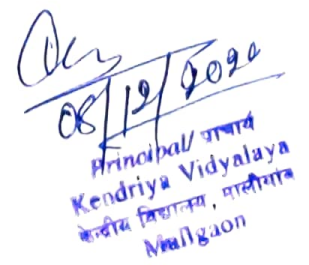 08/12/2020
Principal/ प्राचार्य
Kendriya Vidyalaya
केन्द्रीय विद्यालय, मालीगांव
Maligaon